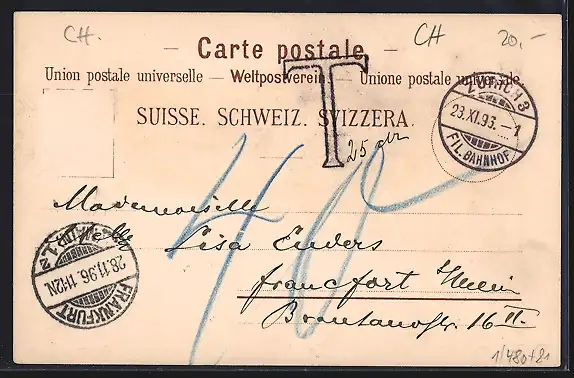 CH. CH 20.-
Carte postale
Union postale universelle — Weltpostverein — Unione postale universale
SUISSE. SCHWEIZ. SVIZZERA.
T
25 ctm
ZÜRICH 3
28.XI.96. – 1
FIL. BAHNHOF
40
Mademoiselle
Lisa Enders
Francfort s/Mein
Brentanostr. 16 II.
FRANKFURT
28.11.96. 11-12N.
1/480+81